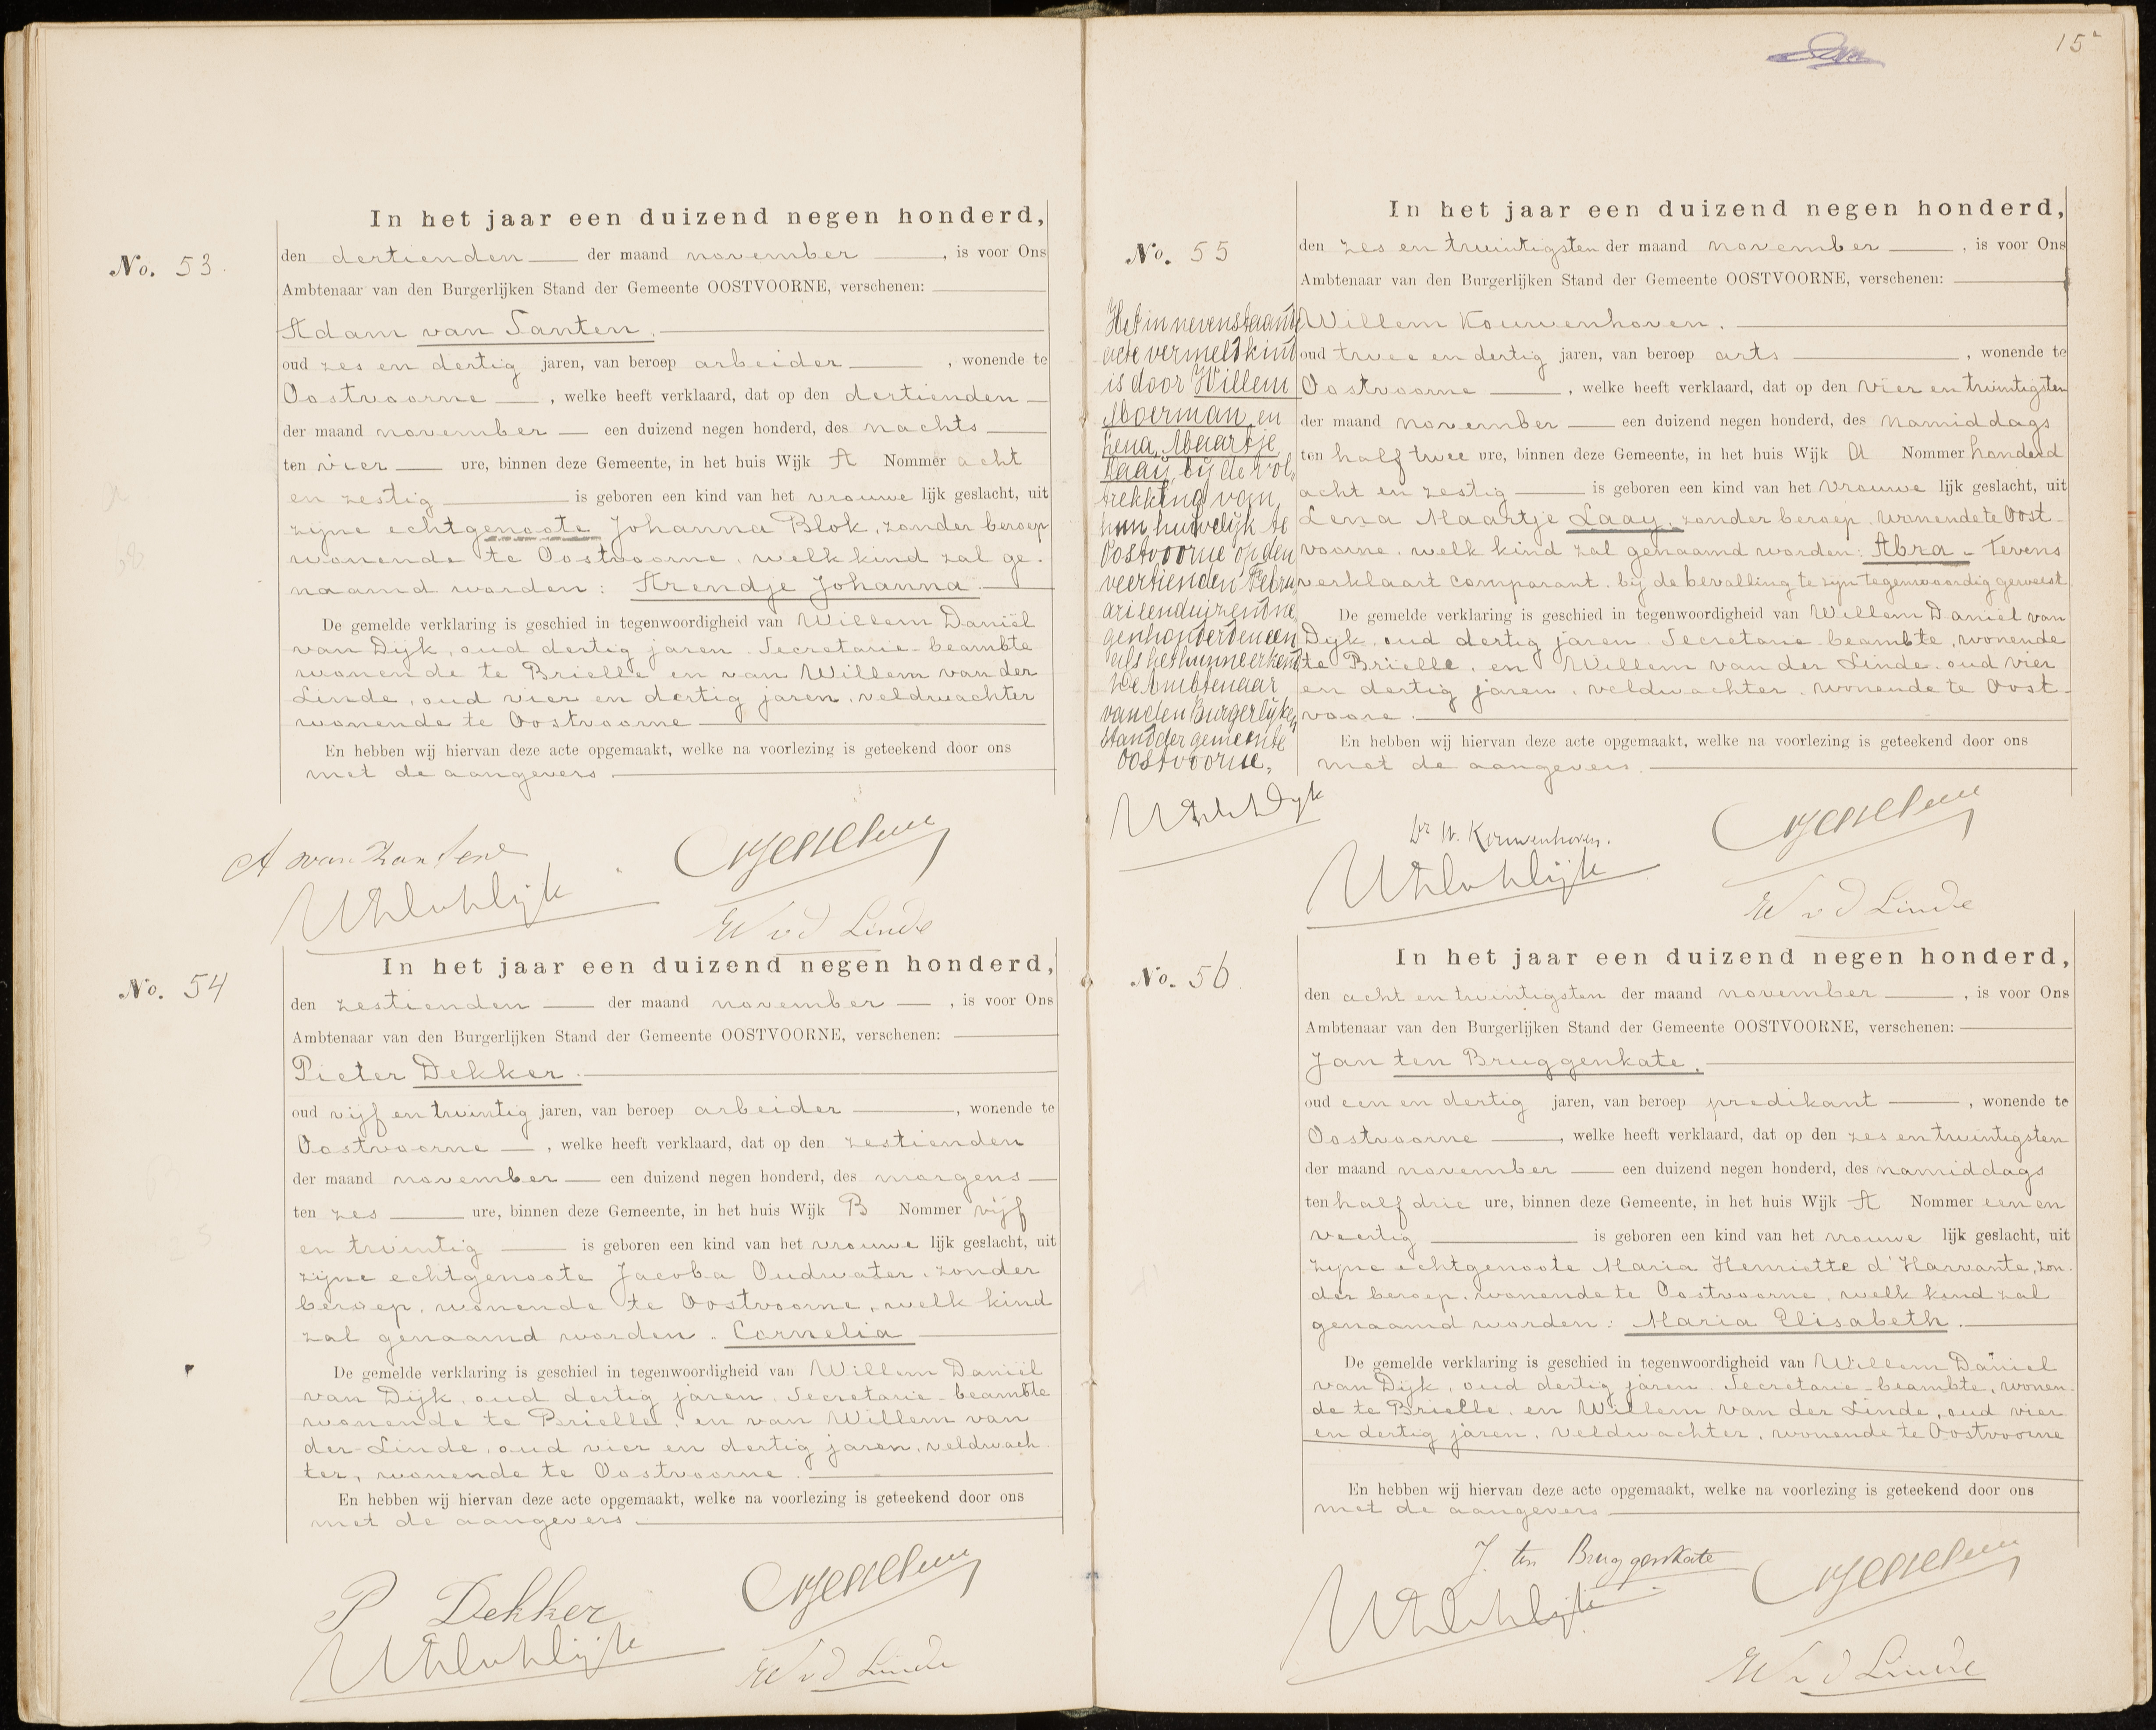 No. 53.
In het jaar een duizend negen honderd,
den dertienden der maand november, is voor Ons
Ambtenaar van den Burgerlijken Stand der Gemeente OOSTVOORNE, verschenen:
Adam van Santen.
oud zes en dertig jaren, van beroep arbeider, wonende te
Oostvoorne, welke heeft verklaard, dat op den dertienden
der maand november een duizend negen honderd, des nachts
ten vier ure, binnen deze Gemeente, in het huis Wijk A Nommer acht
en zestig is geboren een kind van het vrouwe lijk geslacht, uit
zijne echtgenoote Johanna Blok, zonder beroep
wonende te Oostvoorne, welk kind zal ge-
naamd worden: Arendje Johanna.
De gemelde verklaring is geschied in tegenwoordigheid van Willem Daniël
van Dijk, oud dertig jaren, Secretarie-beambte
wonende te Brielle en van Willem van der
Linde, oud vier en dertig jaren, veldwachter
wonende te Oostvoorne
En hebben wij hiervan deze acte opgemaakt, welke na voorlezing is geteekend door ons
met de aangevers.
A van Zantene
W v d Linde
No. 54
In het jaar een duizend negen honderd,
den zestienden der maand november, is voor Ons
Ambtenaar van den Burgerlijken Stand der Gemeente OOSTVOORNE, verschenen:
Pieter Dekker.
oud vijf en twintig jaren, van beroep arbeider, wonende te
Oostvoorne, welke heeft verklaard, dat op den zestienden
der maand november een duizend negen honderd, des morgens
ten zes ure, binnen deze Gemeente, in het huis Wijk B Nommer vijf
en twintig is geboren een kind van het vrouwe lijk geslacht, uit
zijne echtgenoote Jacoba Oudwater, zonder
beroep, wonende te Oostvoorne, welk kind
zal genaamd worden. Cornelia
De gemelde verklaring is geschied in tegenwoordigheid van Willem Daniël
van Dijk, oud dertig jaren, Secretarie-beambte
wonende te Brielle, en van Willem van
der Linde, oud vier en dertig jaren, veldwach
ter, wonende te Oostvoorne.
En hebben wij hiervan deze acte opgemaakt, welke na voorlezing is geteekend door ons
met de aangevers
P Dekker
W v d Linde
15
No. 55
Het in nevenstaande
acte vermeld kind
is door Willem
Moerman en
Lena Maartje
Laaij bij de vol-
trekking van
hun huwelijk te
Oostvoorne op den
veertienden Febru
ari eenduizend ne
genhonderd een
als het hunne erkend
De Ambtenaar
van den Burgerlijken
Stand der gemeente
Oostvoorne,
In het jaar een duizend negen honderd,
den zes en twintigsten der maand november, is voor Ons
Ambtenaar van den Burgerlijken Stand der Gemeente OOSTVOORNE, verschenen:
Willem Kouwenhoven.
oud twee en dertig jaren, van beroep arts, wonende te
Oostvoorne, welke heeft verklaard, dat op den vier en twintigsten
der maand november een duizend negen honderd, des namiddags
ten half twee ure, binnen deze Gemeente, in het huis Wijk A Nommer honderd
acht en zestig is geboren een kind van het vrouwe lijk geslacht, uit
Lena Maartje Laay, zonder beroep, wonende te Oost-
voorne, welk kind zal genaamd worden: Abra - Tevens
verklaart comparant, bij de bevalling te zijn tegenwoordig geweest
De gemelde verklaring is geschied in tegenwoordigheid van Willem Daniël van
Dijk, oud dertig jaren, Secretarie-beambte, wonende
te Brielle, en Willem van der Linde, oud vier
en dertig jaren, veldwachter, wonende te Oost-
voore.
En hebben wij hiervan deze acte opgemaakt, welke na voorlezing is geteekend door ons
met de aangevers.
Dr W. Kouwenhoven.
W v d Linde
No. 56.
In het jaar een duizend negen honderd,
den acht en twintigsten der maand november, is voor Ons
Ambtenaar van den Burgerlijken Stand der Gemeente OOSTVOORNE, verschenen:
Jan ten Bruggenkate.
oud een en dertig jaren, van beroep predikant, wonende te
Oostvoorne, welke heeft verklaard, dat op den zes en twintigsten
der maand november een duizend negen honderd, des namiddags
ten half drie ure, binnen deze Gemeente, in het huis Wijk A Nommer een en
veertig is geboren een kind van het vrouwe lijk geslacht, uit
zijne echtgenoote Maria Henriette d'Harvante, zon-
der beroep, wonende te Oostvoorne, welk kind zal
genaamd worden: Maria Elisabeth.
De gemelde verklaring is geschied in tegenwoordigheid van Willem Daniel
van Dijk, oud dertig jaren, Secretarie-beambte, wonen-
de te Brielle, en Willem van der Linde, oud vier
en dertig jaren, veldwachter, wonende te Oostvoorne
En hebben wij hiervan deze acte opgemaakt, welke na voorlezing is geteekend door ons
met de aangevers
J. ten Bruggenkate
W v d Linde